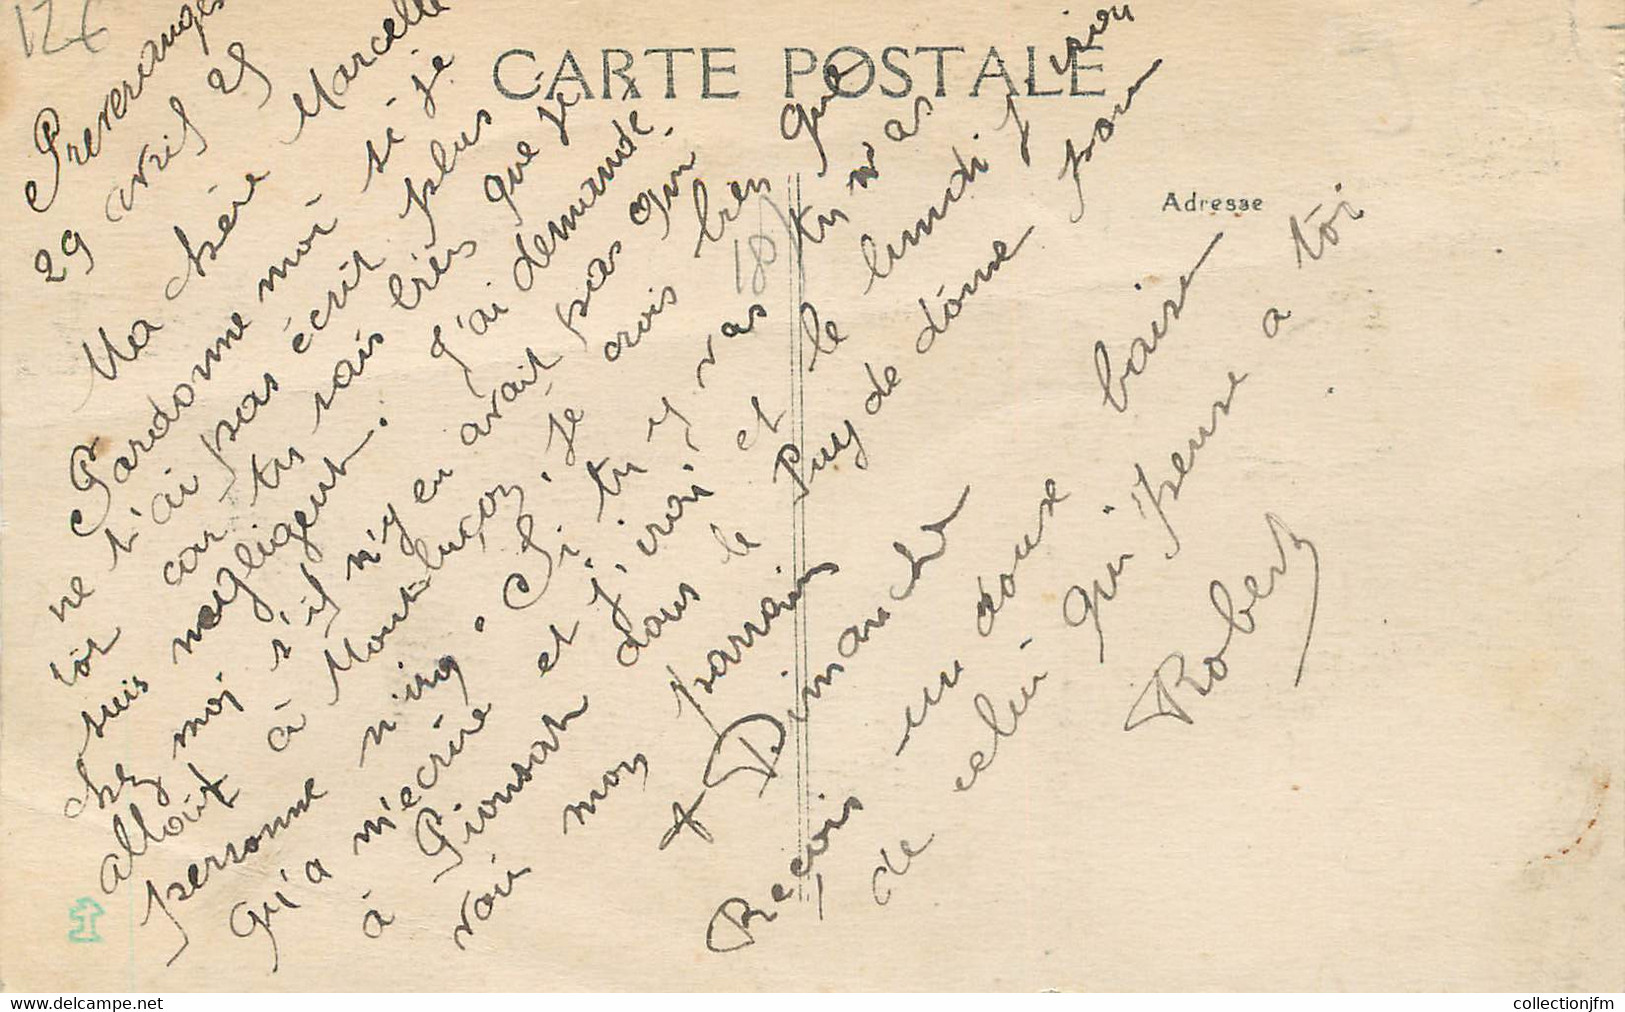 12€
CARTE POSTALE
Adresse
Preveranges
29 avril 25
Ma chère Marcelle
Pardonne moi si je
ne t'ai pas écrit plus
tôt car tu sais bien que je
suis negligent. J'ai demandé
chez moi s'il n'y en avait pas qui
alloit à Montluçon, je crois bien que
personne n'ira. Si tu y vas tu n'as
qu'a m'ecrire et j'irai et le lundi j'irai
à Pionsat dans le Puy de dôme pour
voir mon parrain
+ Dimanche
Reçois un doux baiser
de celui qui pense a toi
Robert
collectionjfm